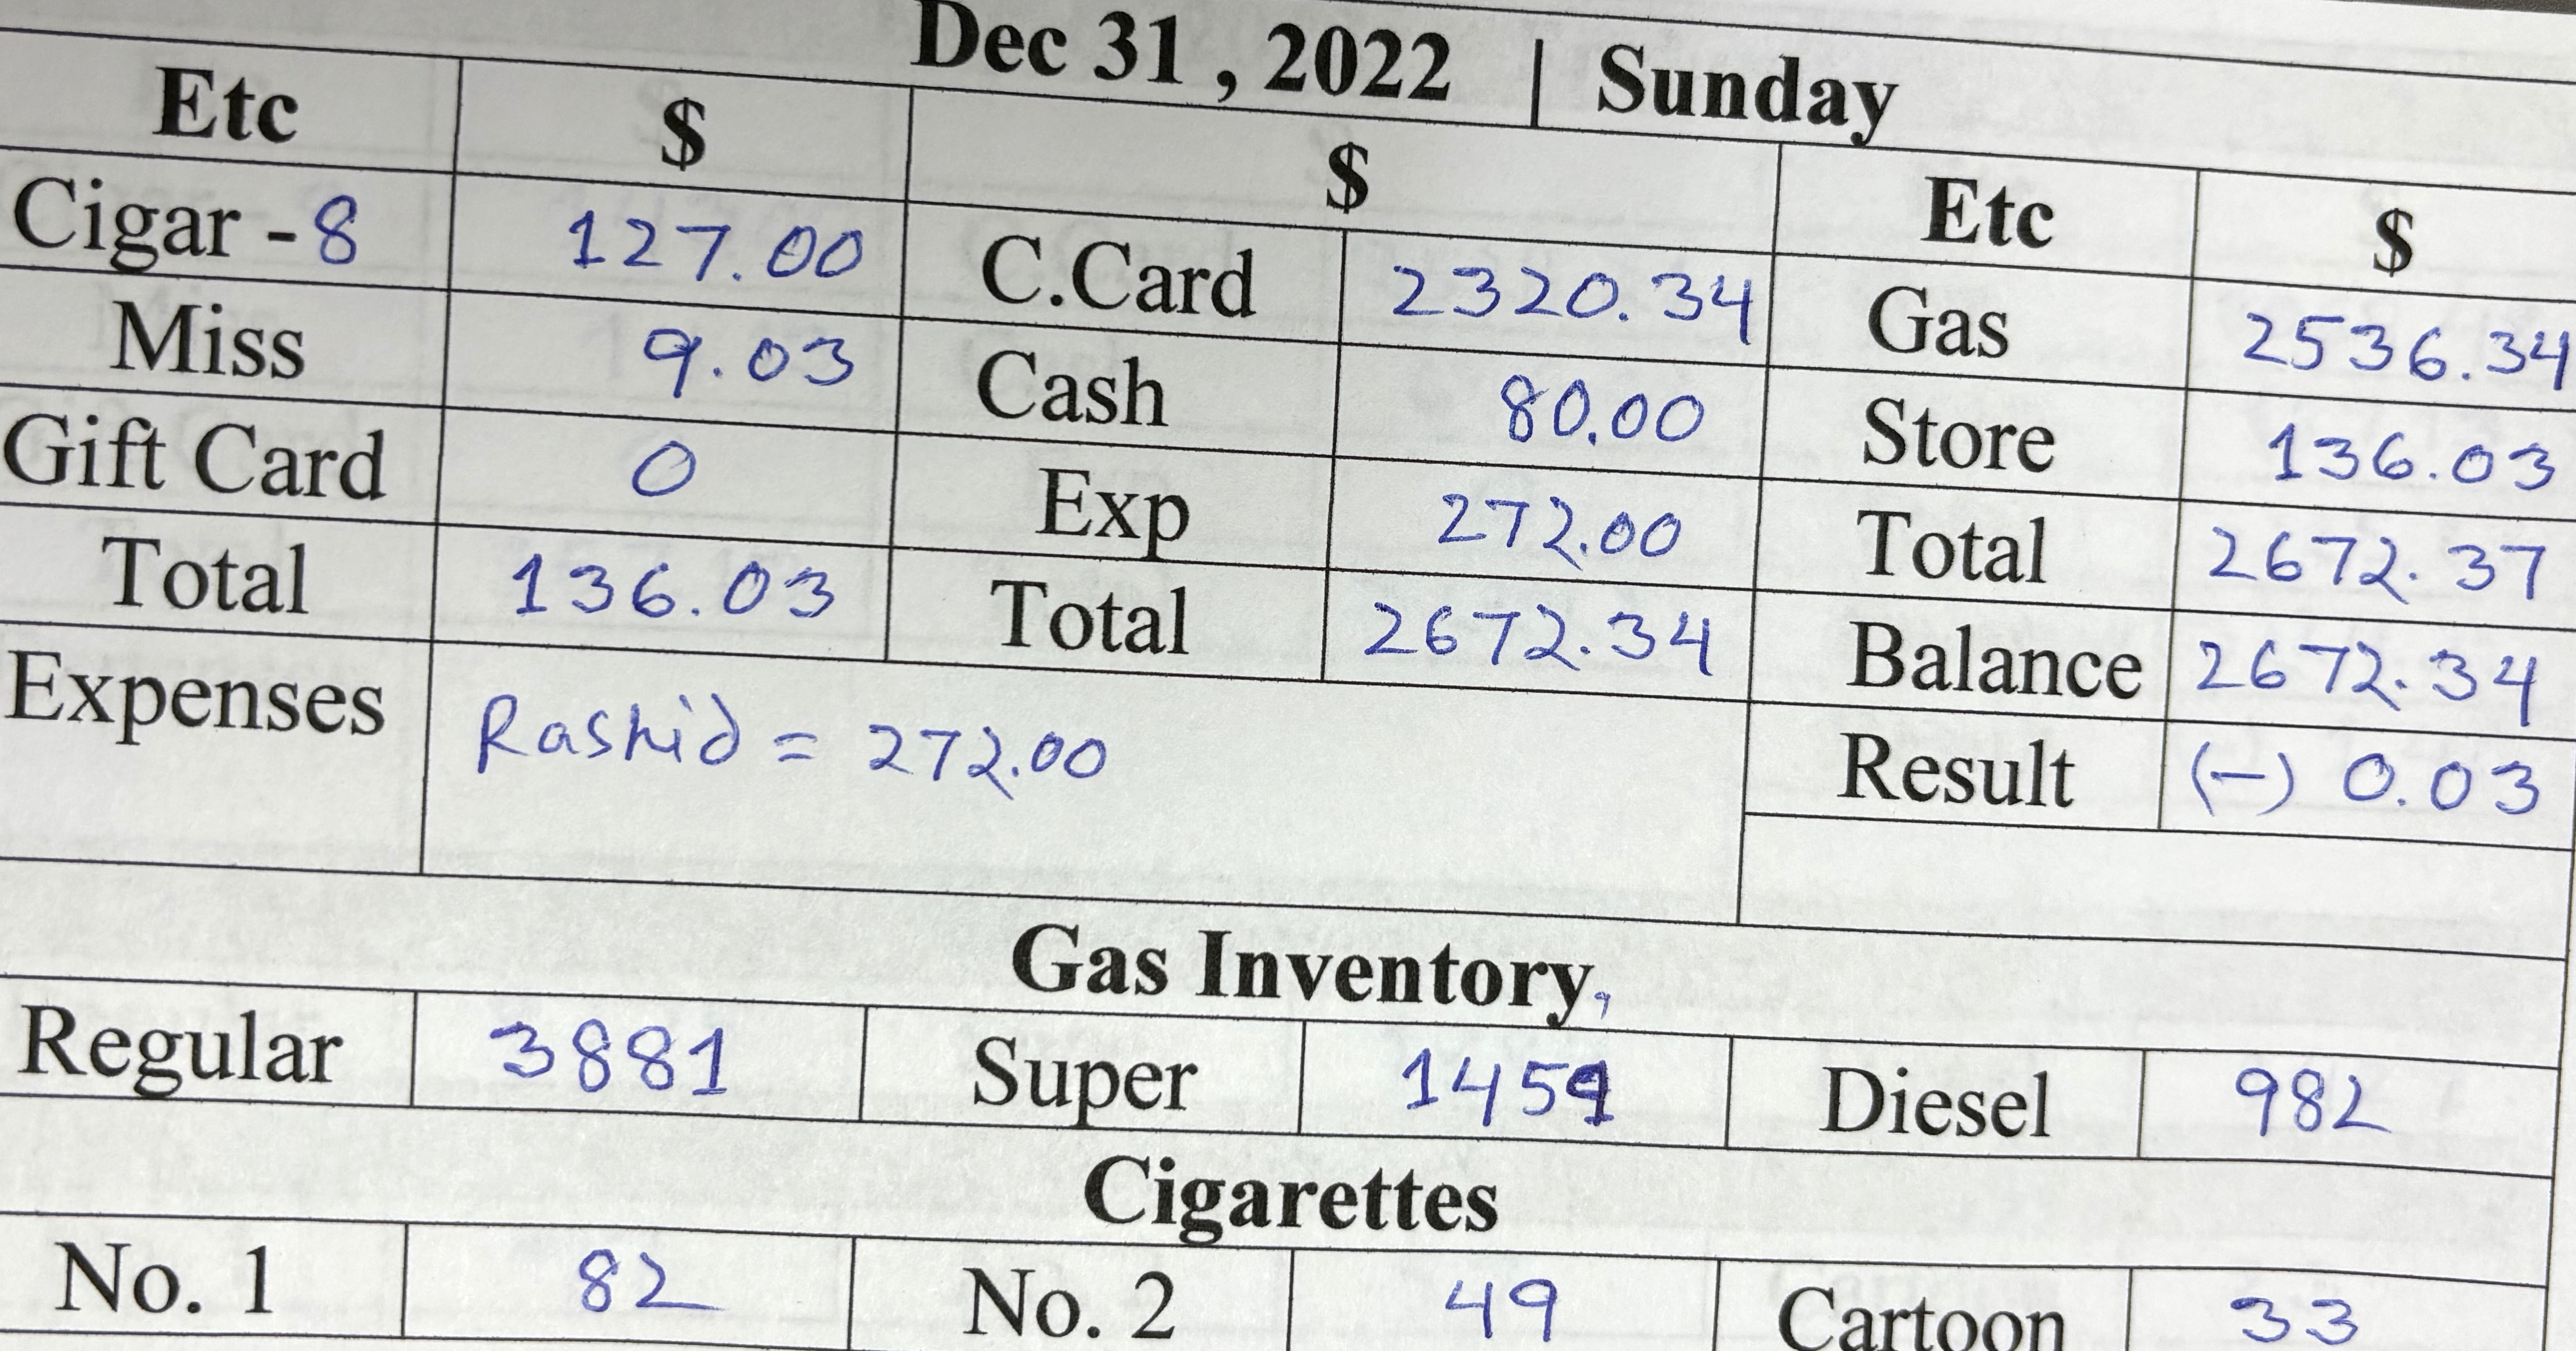 Dec 31 , 2022 | Sunday
Etc $ $ Etc $
Cigar - 8 127.00 C.Card 2320.34 Gas 2536.34
Miss 9.03 Cash 80.00 Store 136.03
Gift Card 0 Exp 272.00 Total 2672.37
Total 136.03 Total 2672.34 Balance 2672.34
Expenses Rashid = 272.00 Result (-) 0.03
Gas Inventory,
Regular 3881 Super 1459 Diesel 982
Cigarettes
No. 1 82 No. 2 49 Cartoon 33